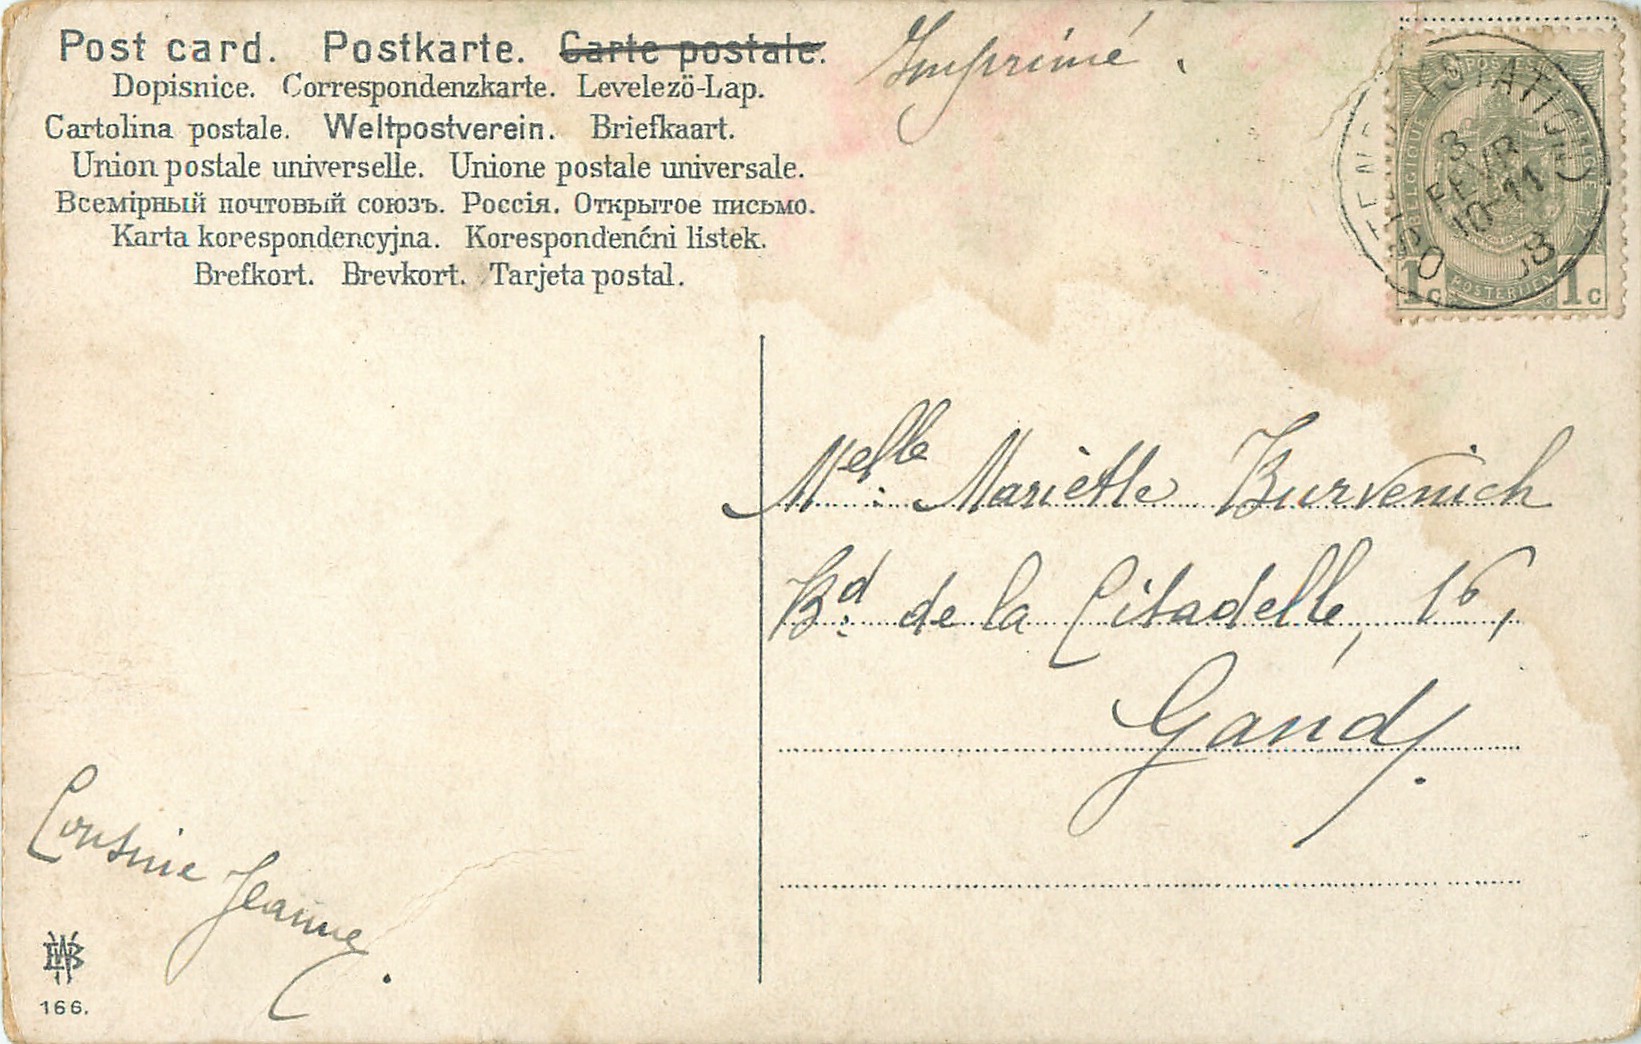 Post card. Postkarte. Carte postale.
Dopisnice. Correspondenzkarte. Levelezö-Lap.
Cartolina postale. Weltpostverein. Briefkaart.
Union postale universelle. Unione postale universale.
Всемірный почтовый союзъ. Россія. Открытое письмо.
Karta korespondencyjna. Korespondenćni listek.
Brefkort. Brevkort. Tarjeta postal.
Imprimé.
(STATION)
3
FEVR
10-11
08
BELGIQUE
BELGIE
POSTERIJEN
1c 1c
Melle. Mariette Burvenich
Bd. de la Citadelle, 16,
Gand.
Cousine Jeanne.
166.